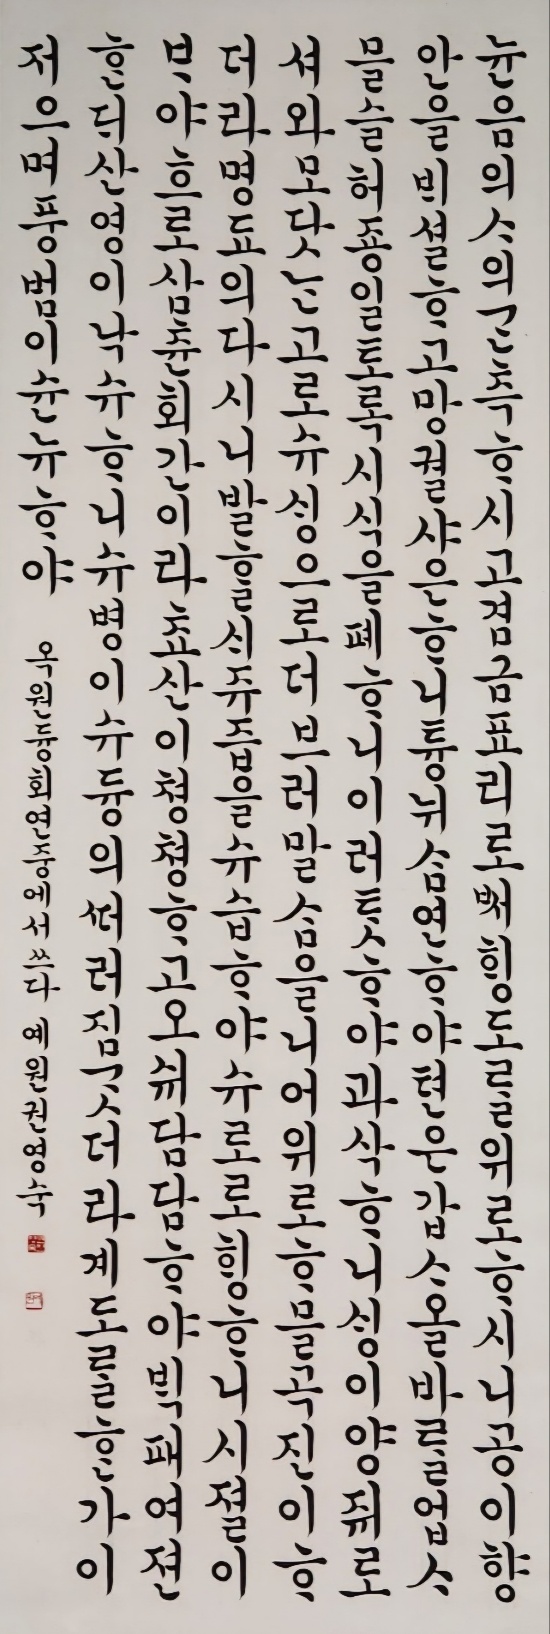 뉸음의 ᄉᆞ의 ᄀᆞᆫ측ᄒᆞ시고 겸금표리로ᄡᅥ ᄒᆡᆼ도ᄅᆞᆯ 위로ᄒᆞ시니 공이 향
안을 ᄇᆡ셜ᄒᆞ고 망궐샤은ᄒᆞ니 튱뉘 ᄉᆞᆷ연ᄒᆞ야 텬은 갑ᄉᆞ올 바ᄅᆞᆯ 업ᄉᆞ
믈 슬허 죵일토록 시식을 폐ᄒᆞ니 이러ᄐᆞᆺᄒᆞ야 과삭ᄒᆞ니 ᄉᆡᆼ이 양쥐로
셔 와 모닷ᄂᆞᆫ고로 슈ᄉᆡᆼ으로 더브러 말ᄉᆞᆷ을 니어 위로ᄒᆞ믈 곡진이 ᄒᆞ
더라 명됴의 다시 니발ᄒᆞᆯᄉᆡ 쥬즙을 슈습ᄒᆞ야 슈로로 ᄒᆡᆼᄒᆞ니 시졀이
ᄇᆞ야흐로 삼츈회간이라 쵸산이 쳥쳥ᄒᆞ고 오쉬 담담ᄒᆞ야 ᄇᆡᆨ패여젼
ᄒᆞᆫᄃᆡ 산영이 낙슈ᄒᆞ니 슈병이 슈듕의 ᄯᅥ러짐 ᄀᆞᆺ더라 계도ᄅᆞᆯ ᄒᆞᆫ가이
저으며 풍범이 슌뉴ᄒᆞ야
옥원듕회연중에서 쓰다 예원 권영숙